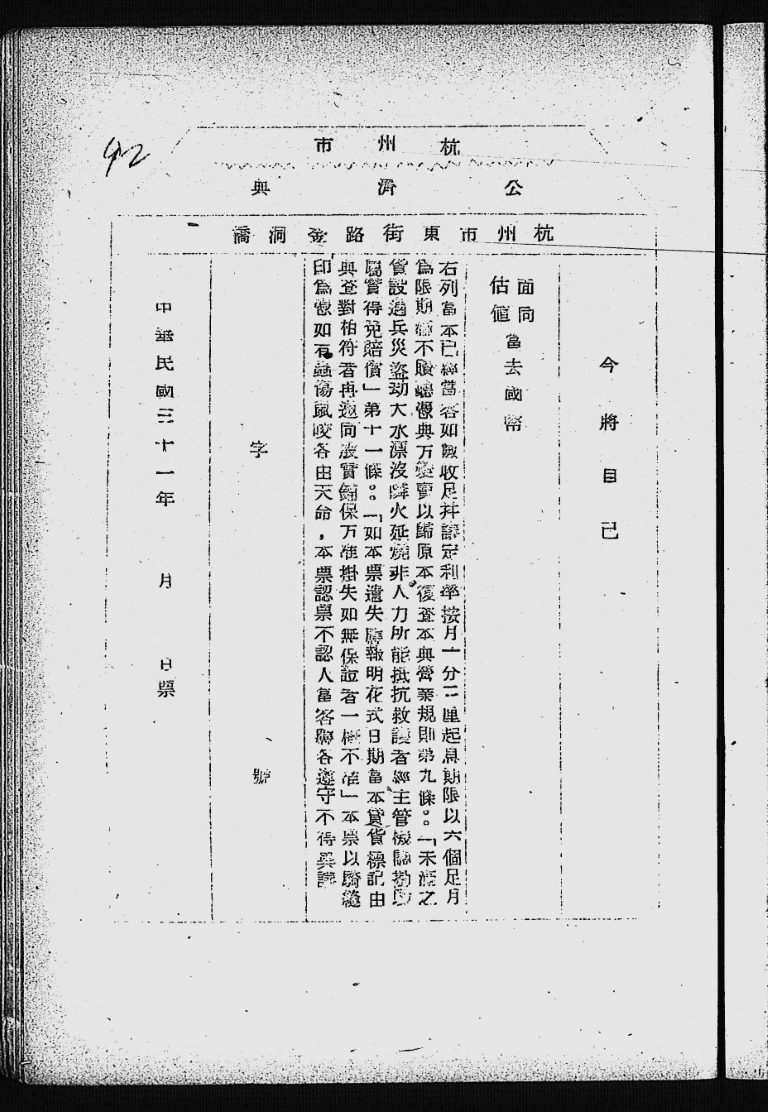 92
杭州市
公濟典
杭州市東街路登洞橋
今將自己
面同
估値
當去國幣
右列當本已經當客如數收足幷議定利率按月一分二厘起息期限以六個足月
爲限期滿不贖聽憑典方變賣以歸原本復查本典營業規則第九條。「未滿之
貨設遇兵災盜劫大水漂沒隣火延燒非人力所能抵抗救護者經主管機關勘
屬實得免賠償」第十一條。「如本票遺失應報明花式日期當本貨標記由
典查對相符者再邀同殷實舖保方准掛失如無保證者一槪不准」本票以騎縫
印爲憑如有蟲傷鼠咬各由天命，本票認票不認人當客應各遵守不得異議
字 號
中華民國三十一年 月 日票